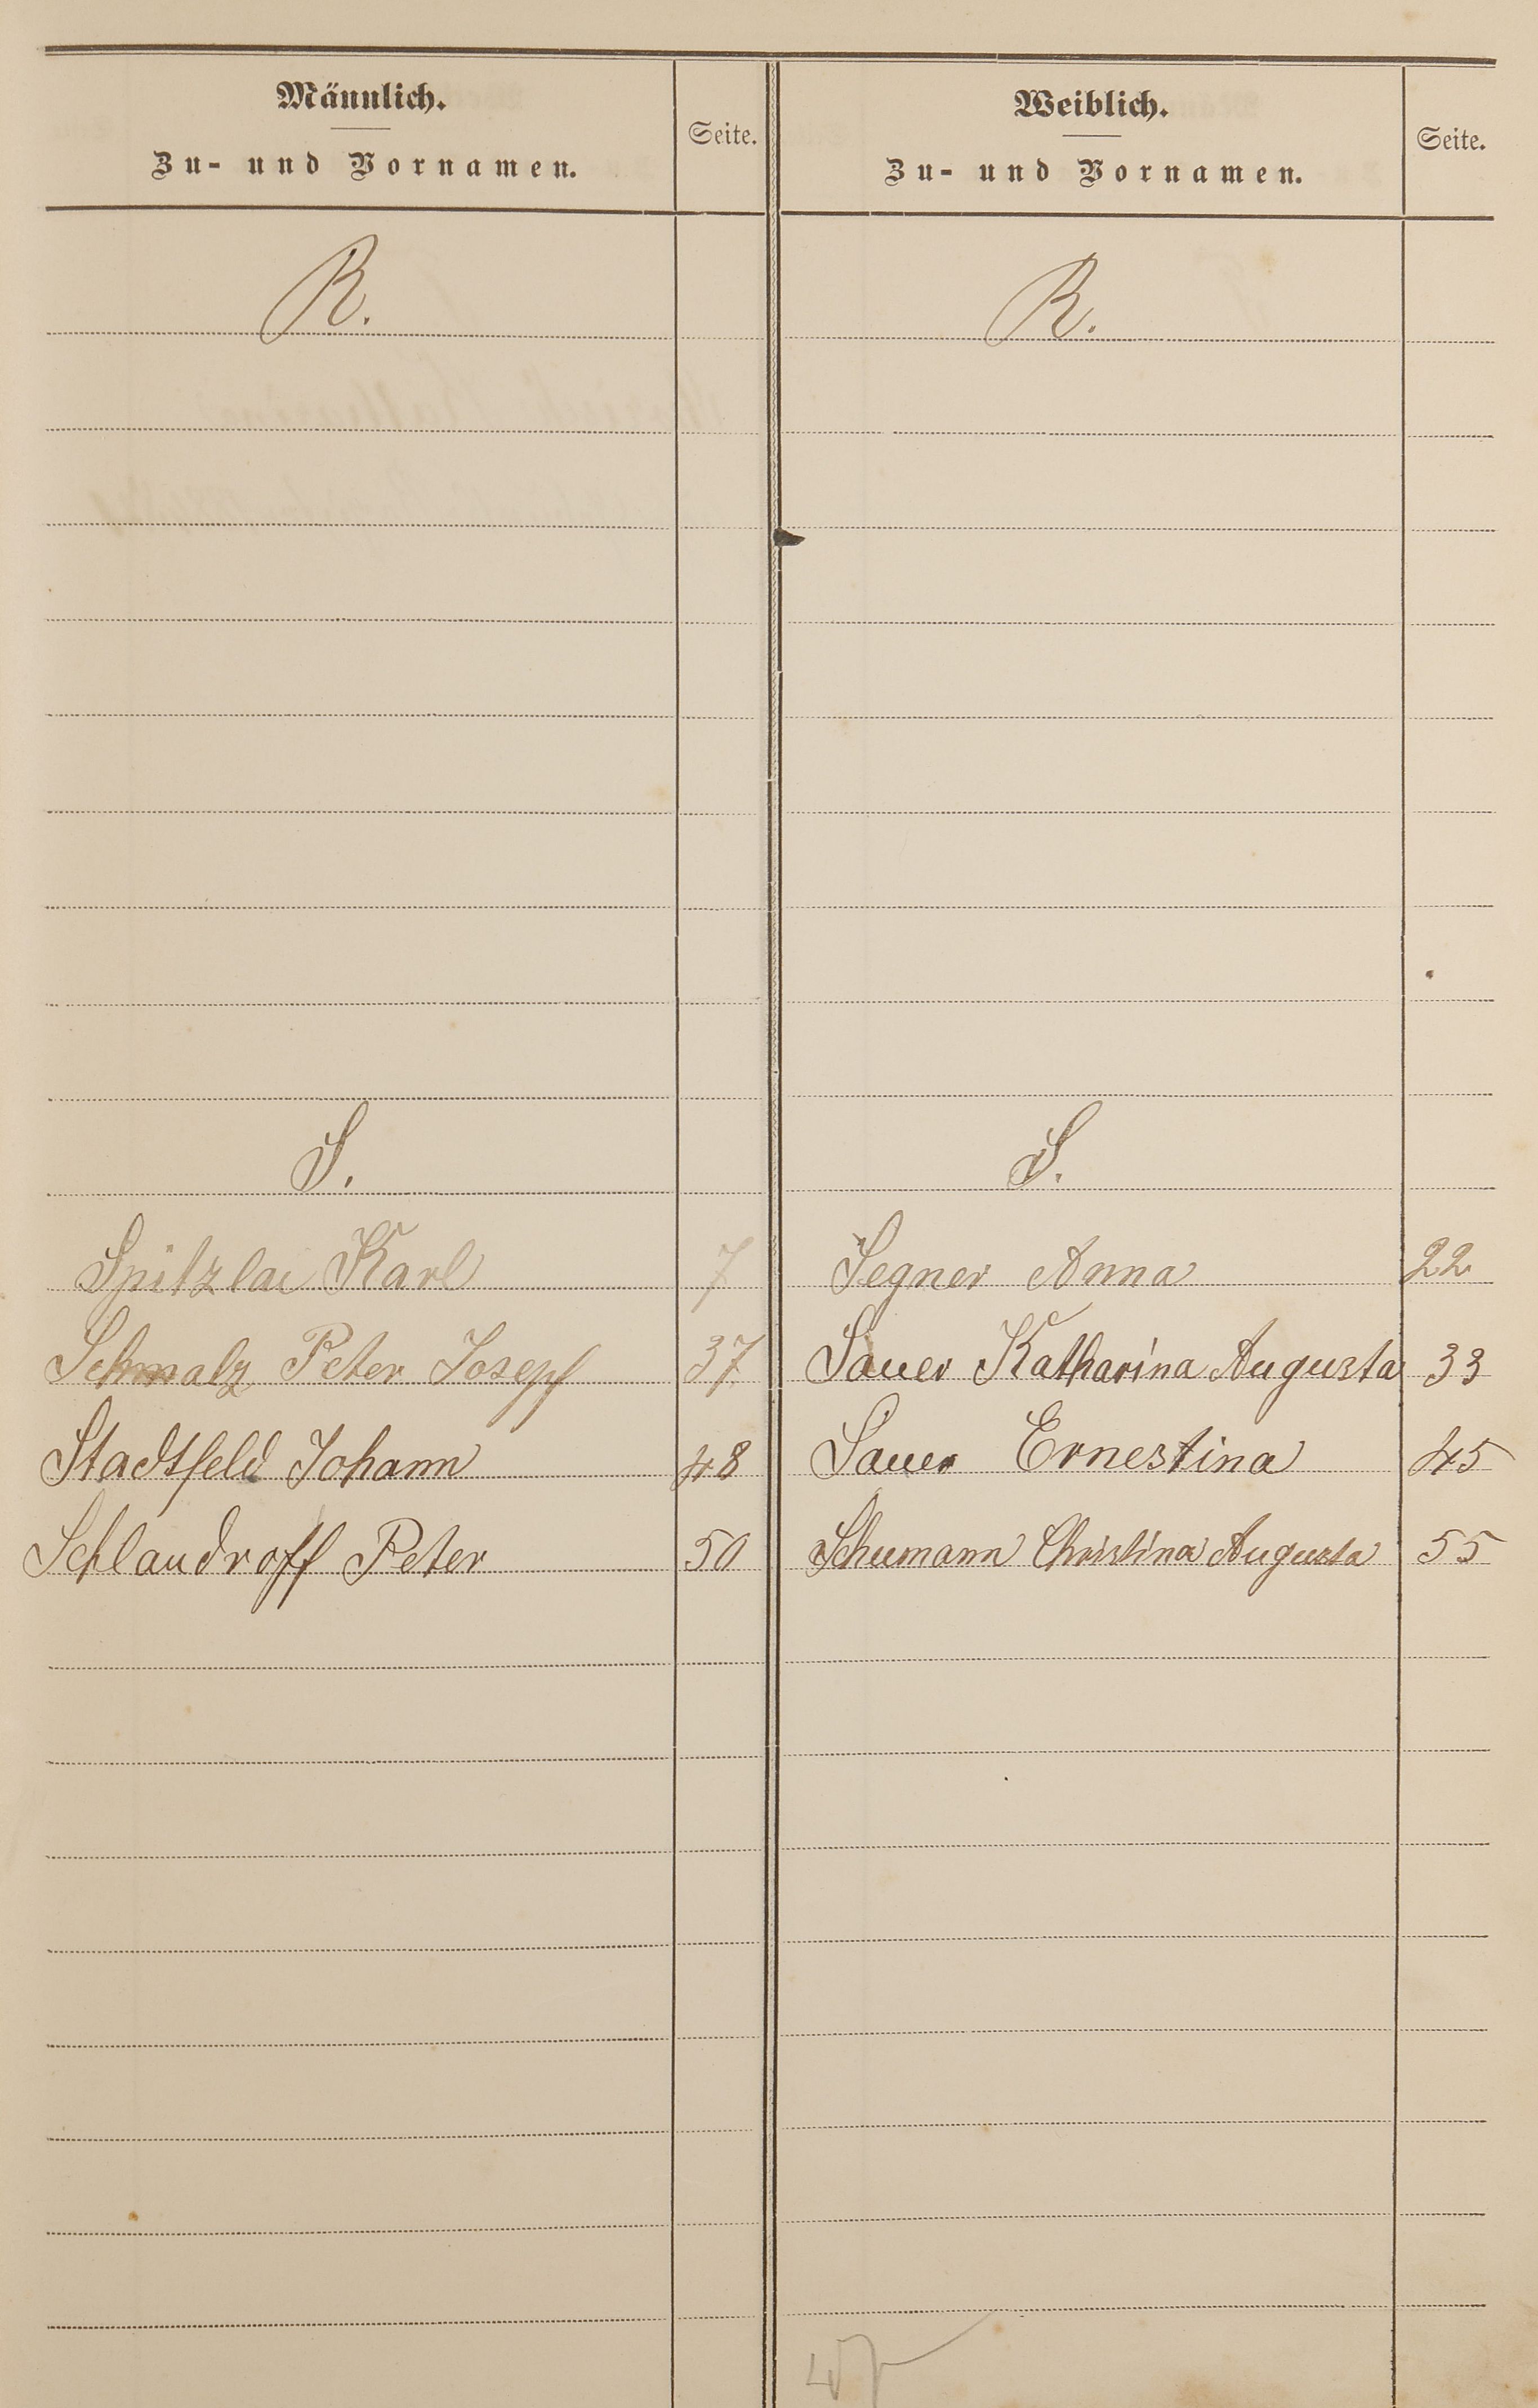 Männlich.
Zu- und Vornamen.
Seite.
Weiblich.
Zu- und Vornamen.
Seite.
R.
R.
S.
S.
Spitzlai Karl 7
Segner Anna 22
Schmalz Peter Josepf 37
Sauer Katharina Augusta 33
Stadtfeld Johann 48
Sauer Ernestina 45
Schlaudroff Peter 50
Schumann Christina Augusta 55